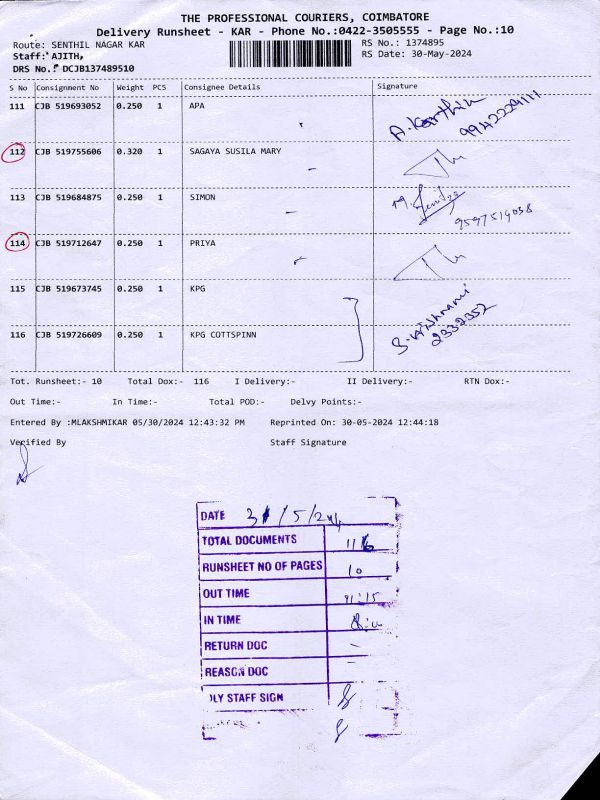 THE PROFESSIONAL COURIERS, COIMBATORE
Delivery Runsheet - KAR - Phone No.:0422-3505555 - Page No.:10
Route: SENTHIL NAGAR KAR
RS No.: 1374895
Staff: AJITH,
RS Date: 30-May-2024
DRS No.: DCJB137489510
S No Consignment No Weight PCS Consignee Details Signature
111 CJB 519693052 0.250 1 APA
A.Karthik
9942229111
112 CJB 519755606 0.320 1 SAGAYA SUSILA MARY
113 CJB 519684875 0.250 1 SIMON
9597519038
114 CJB 519712647 0.250 1 PRIYA
115 CJB 519673745 0.250 1 KPG
2332352
116 CJB 519726609 0.250 1 KPG COTTSPINN
Tot. Runsheet:- 10 Total Dox:- 116 I Delivery:- II Delivery:- RTN Dox:-
Out Time:- In Time:- Total POD:- Delvy Points:-
Entered By :MLAKSHMIKAR 05/30/2024 12:43:32 PM Reprinted On: 30-05-2024 12:44:18
Verified By Staff Signature
DATE 31/5/24
TOTAL DOCUMENTS 116
RUNSHEET NO OF PAGES 10
OUT TIME 11:15
IN TIME
RETURN DOC -
REASON DOC -
DLY STAFF SIGN